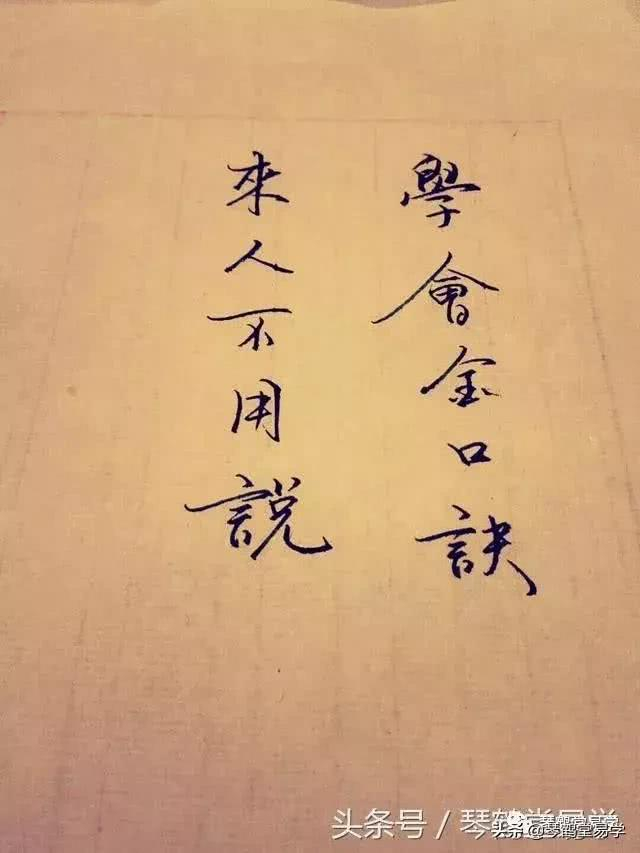 學會金口訣
來人不用說
头条号／琴鹤堂易学
头条@琴鹤堂易学